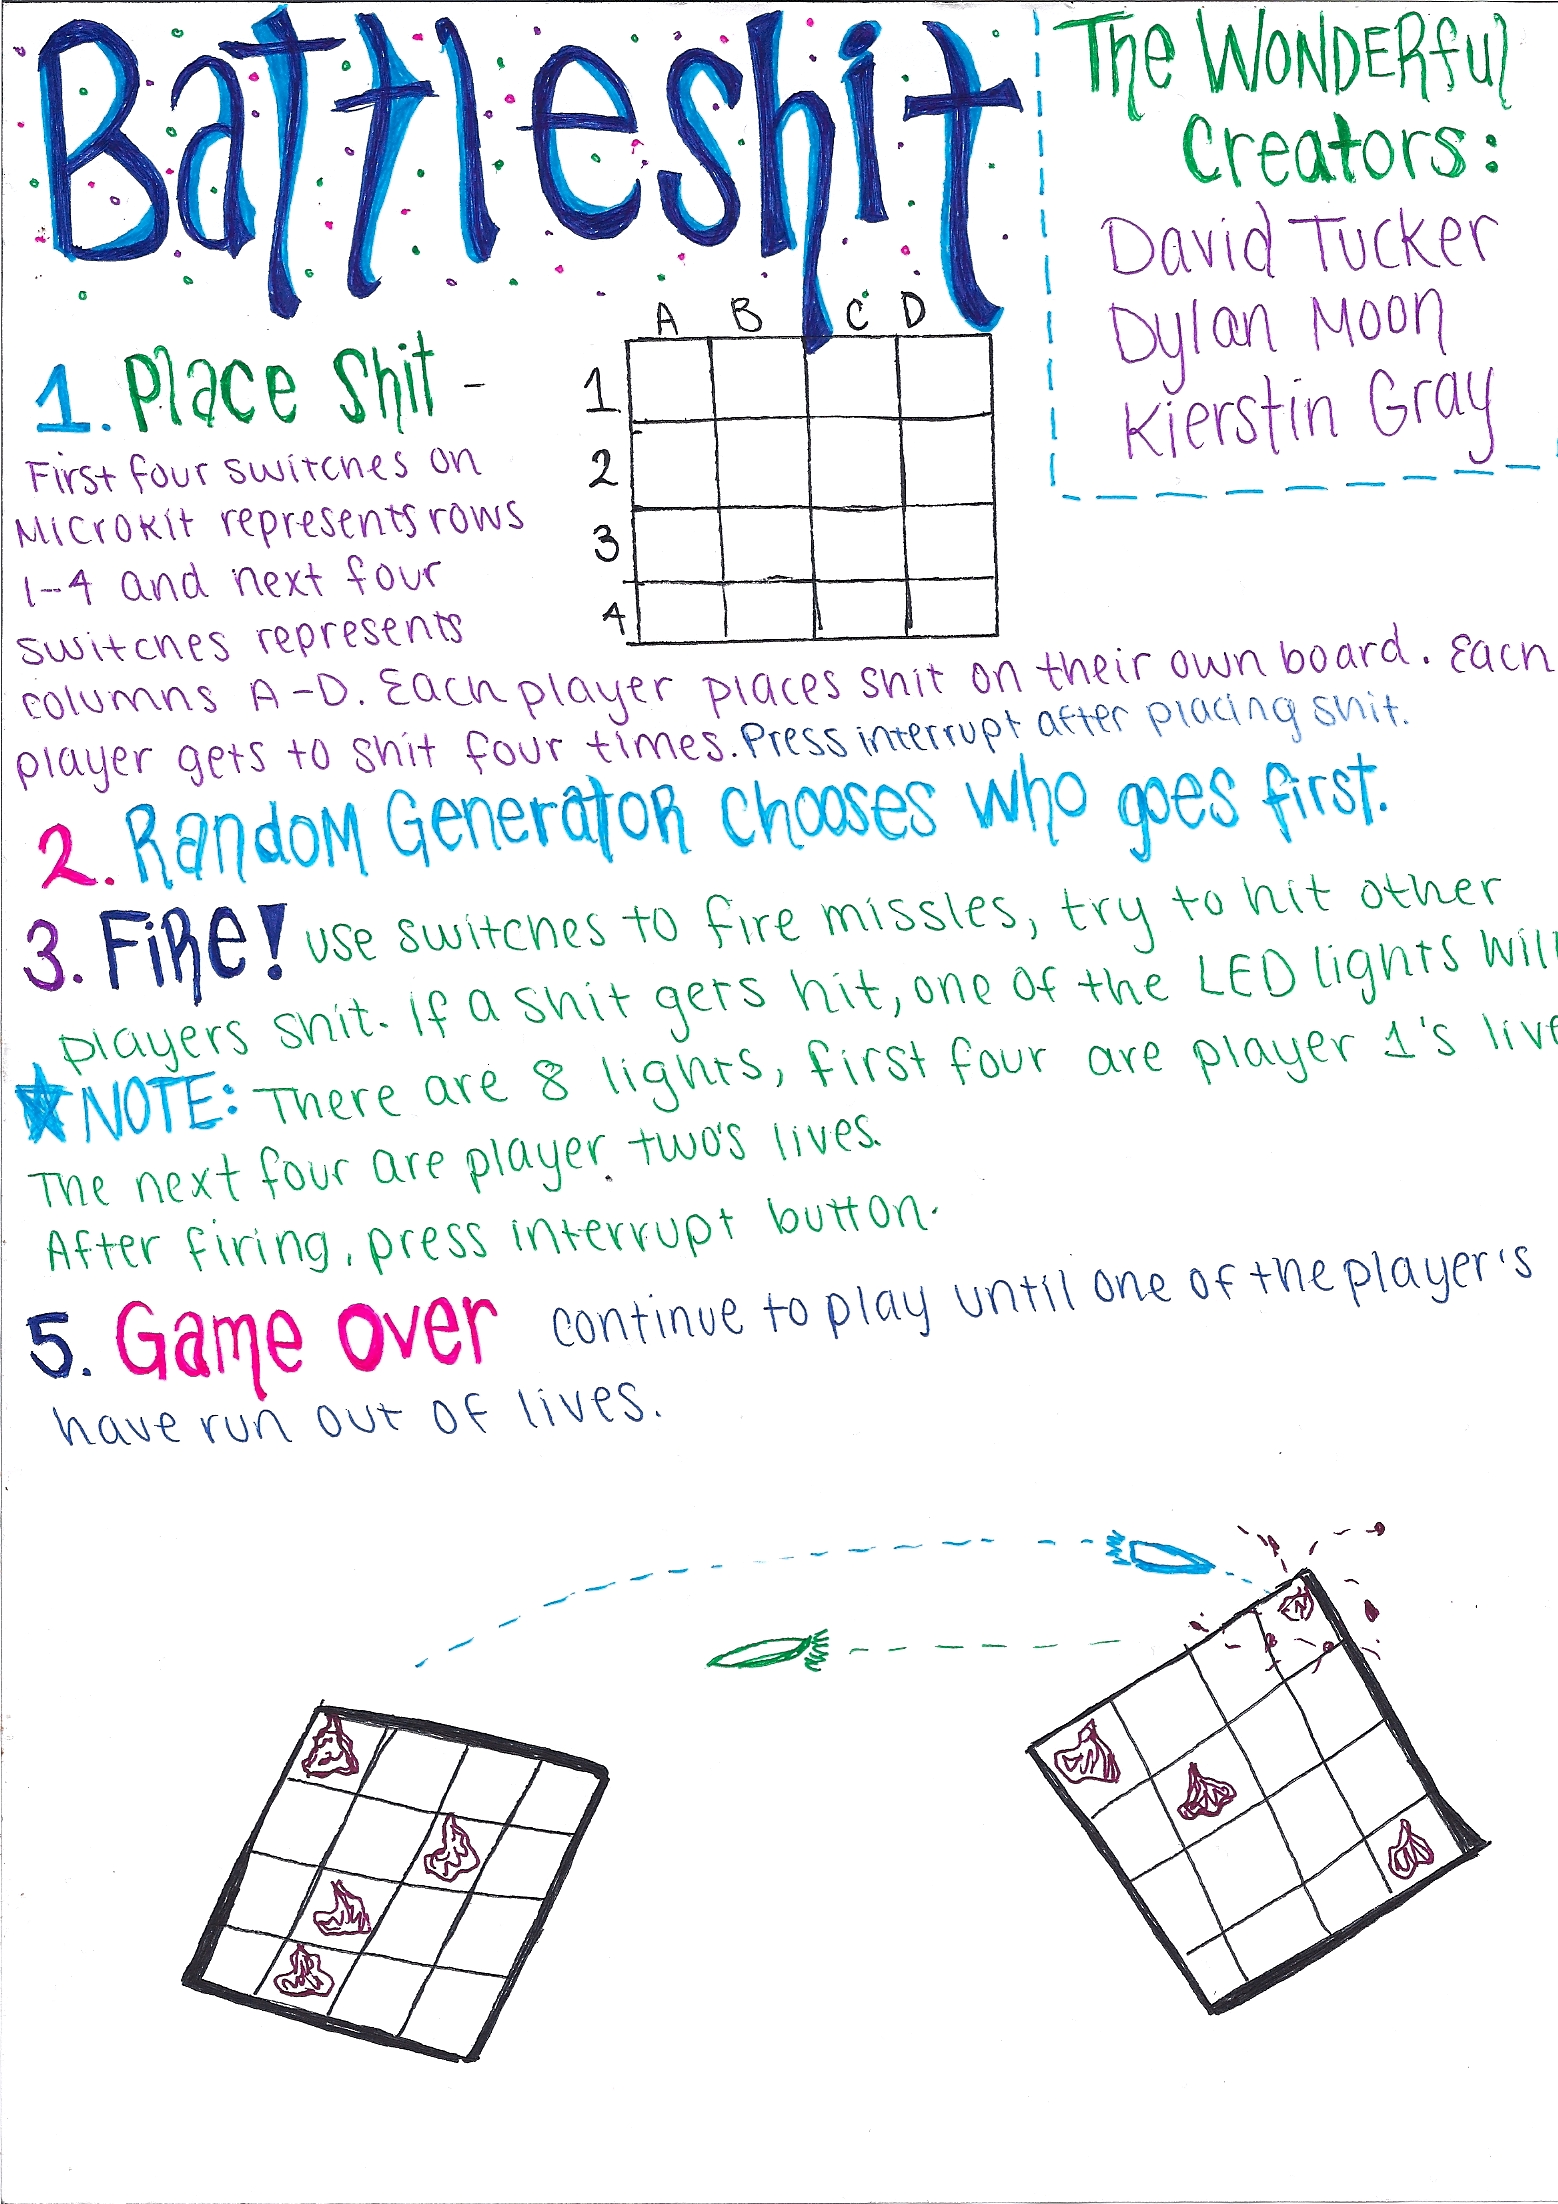 Battleshit
The WONDERful
Creators:
David Tucker
Dylan Moon
Kierstin Gray
A B C D
1
2
3
4
1. Place Shit -
First four switches on
Microkit represents rows
1-4 and next four
switches represents
columns A-D. Each player places shit on their own board. Each
player gets to shit four times. Press interrupt after placing shit.
2. Random Generator chooses who goes first.
3. Fire! use switches to fire missles, try to hit other
players shit. If a shit gets hit, one of the LED lights will
NOTE: There are 8 lights, first four are player 1's live
The next four are player two's lives.
After firing, press interrupt button.
5. Game Over continue to play until one of the player's
have run out of lives.